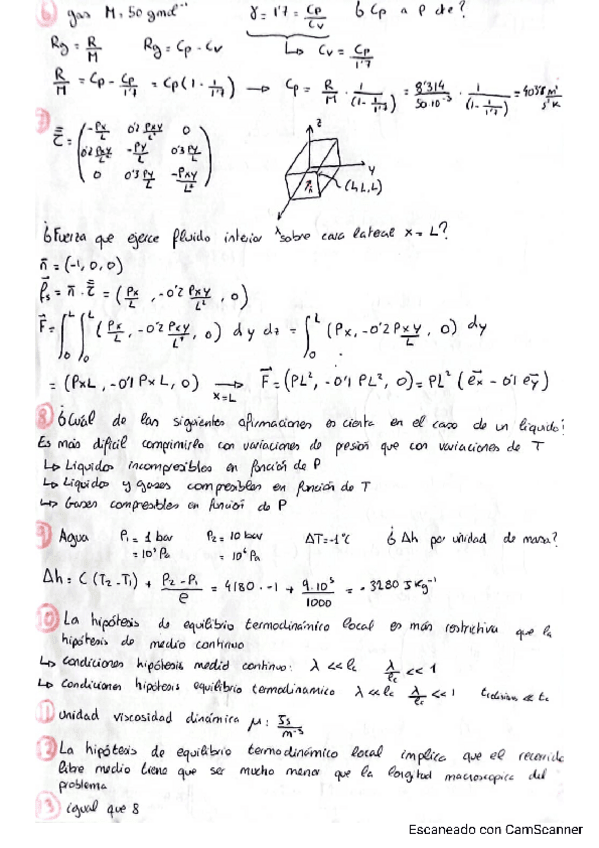 6) gas M: 50 gmol⁻¹ γ = 1'7 = Cp/Cv ¿Cp a P cte?
Rg = R/M Rg = Cp - Cv ↳ Cv = Cp/1'7
R/M = Cp - Cp/1'7 = Cp(1 - 1/1'7) → Cp = R/M · 1/(1-1/1'7) = 8'314/50·10⁻³ · 1/(1-1/1'7)
z
y
(L,L,L)
¿Fuerza que ejerce fluido interior sobre cara lateral x = L?
n̄ = (-1, 0, 0)
f̄s = n̄ · τ̿ = (Px/L, -0'2 Pxy/L², 0)
F̄ = ∫₀ᴸ ∫₀ᴸ (Px/L, -0'2 Pxy/L², 0) dy dz = ∫₀ᴸ (Px, -0'2 Pxy/L, 0) dy
= (PxL, -0'1 PxL, 0) → x=L F̄ = (PL², -0'1 PL², 0) = PL² (e̅x - 0'1 e̅y)
8) ¿Cuál de las siguientes afirmaciones es cierta en el caso de un líquido?
Es más difícil comprimirlo con variaciones de presión que con variaciones de T
↳ Líquidos incompresibles en función de P
↳ Líquidos y gases compresibles en función de T
↳ Gases compresibles en función de P
9) Agua P₁ = 1 bar P₂ = 10 bar ΔT = -1 °C ¿Δh por unidad de masa?
= 10⁵ Pa = 10⁶ Pa
Δh = C (T₂ - T₁) + (P₂ - P₁)/ρ = 4180 · -1 + 9·10⁵/1000 = -3280 J Kg⁻¹
10) La hipótesis de equilibrio termodinámico local es más restrictiva que la
hipótesis de medio continuo
↳ Condiciones hipótesis medio continuo: λ << lc λ/lc << 1
↳ Condiciones hipótesis equilibrio termodinamico λ << lc λ/lc << 1 << tc
11) unidad viscosidad dinámica μ:
12) La hipótesis de equilibrio termodinámico local implica que el recorrido
libre medio tiene que ser mucho menor que la longitud macroscopica del
problema
13) igual que 8
Escaneado con CamScanner